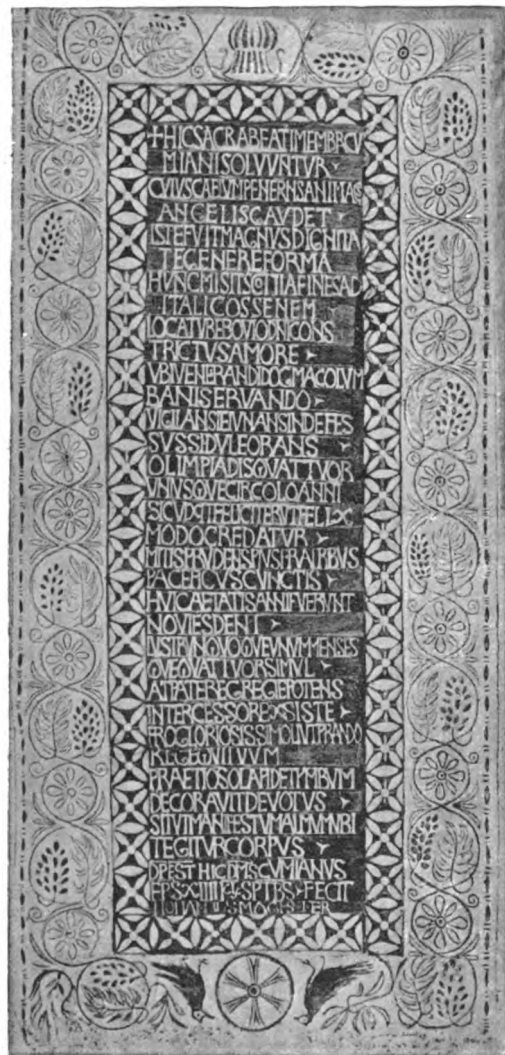 +HICSACRABEATIMEMBRCU
MIANISOLVVNTVR
CVIVSCAELVMPENETRNSANIMACO
ANGELISGAVDET
ISTEFVITMAGNVSDIGNITA
TEGENEREFORMA
HVNCMISITSCOTTIAFINESAD
ITALICOSSENEM
LOCATVREBOVIODNICONS
TRICTVSAMORE
VBIVENERANDIDOGMACOLVM
BANISERVANDO
VIGILANSIEIVNANSINDEFES
SVSSIDVLEORANS
OLIMPIADISQVATTVOR
VNIVSQVECIRCOLOANNI
MODOCREDATVR
MITISPRVDENSPIVSFRATRIBVS
PACEFICVSCVNCTIS
HVICAETATISANNIFVERVNT
NOVIESDENI
LVSTRVNQVOQVEVNVMMENSES
QVEQVATTVORSIMVL
ATPATEREGREGIEPOTENS
INTERCESSOREXSISTE
PROGLORIOSISSIMOLIVTPRANDO
REGEQVITVVM
PRAETIOSOLAPIDETYMBVM
DECORAVITDEVOTVS
SITVTMANIFESTVMALMVMVBI
TEGITVRCORPVS
DPESTHICDMSCVMIANVS